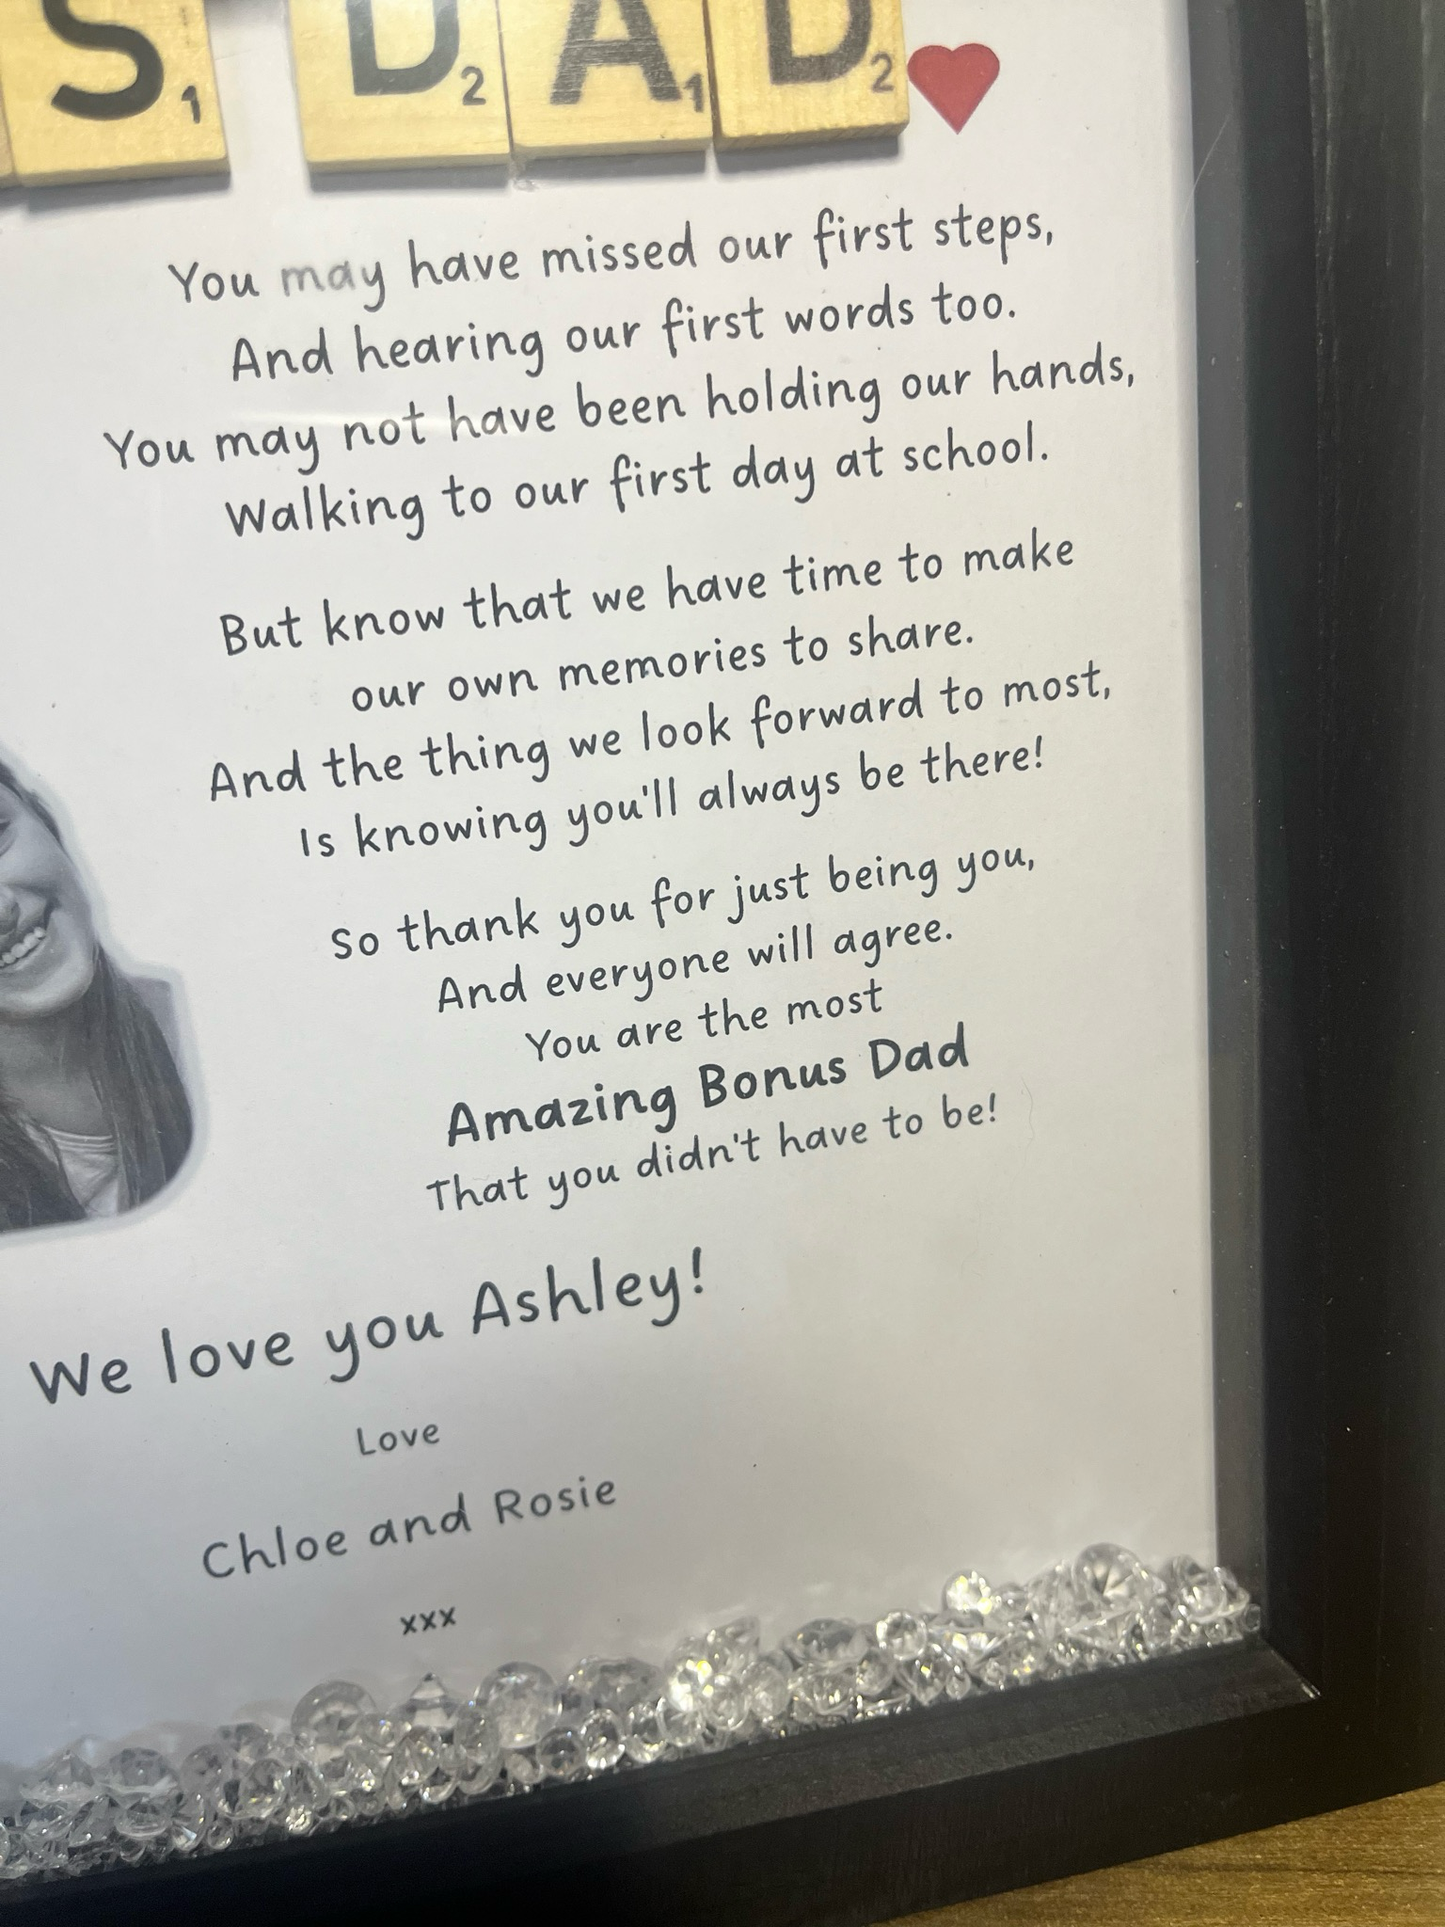 S1 D2 A1 D2
You may have missed our first steps,
And hearing our first words too.
You may not have been holding our hands,
Walking to our first day at school.
But know that we have time to make
our own memories to share.
And the thing we look forward to most,
Is knowing you'll always be there!
So thank you for just being you,
And everyone will agree.
You are the most
Amazing Bonus Dad
That you didn't have to be!
We love you Ashley!
Love
Chloe and Rosie
xxx